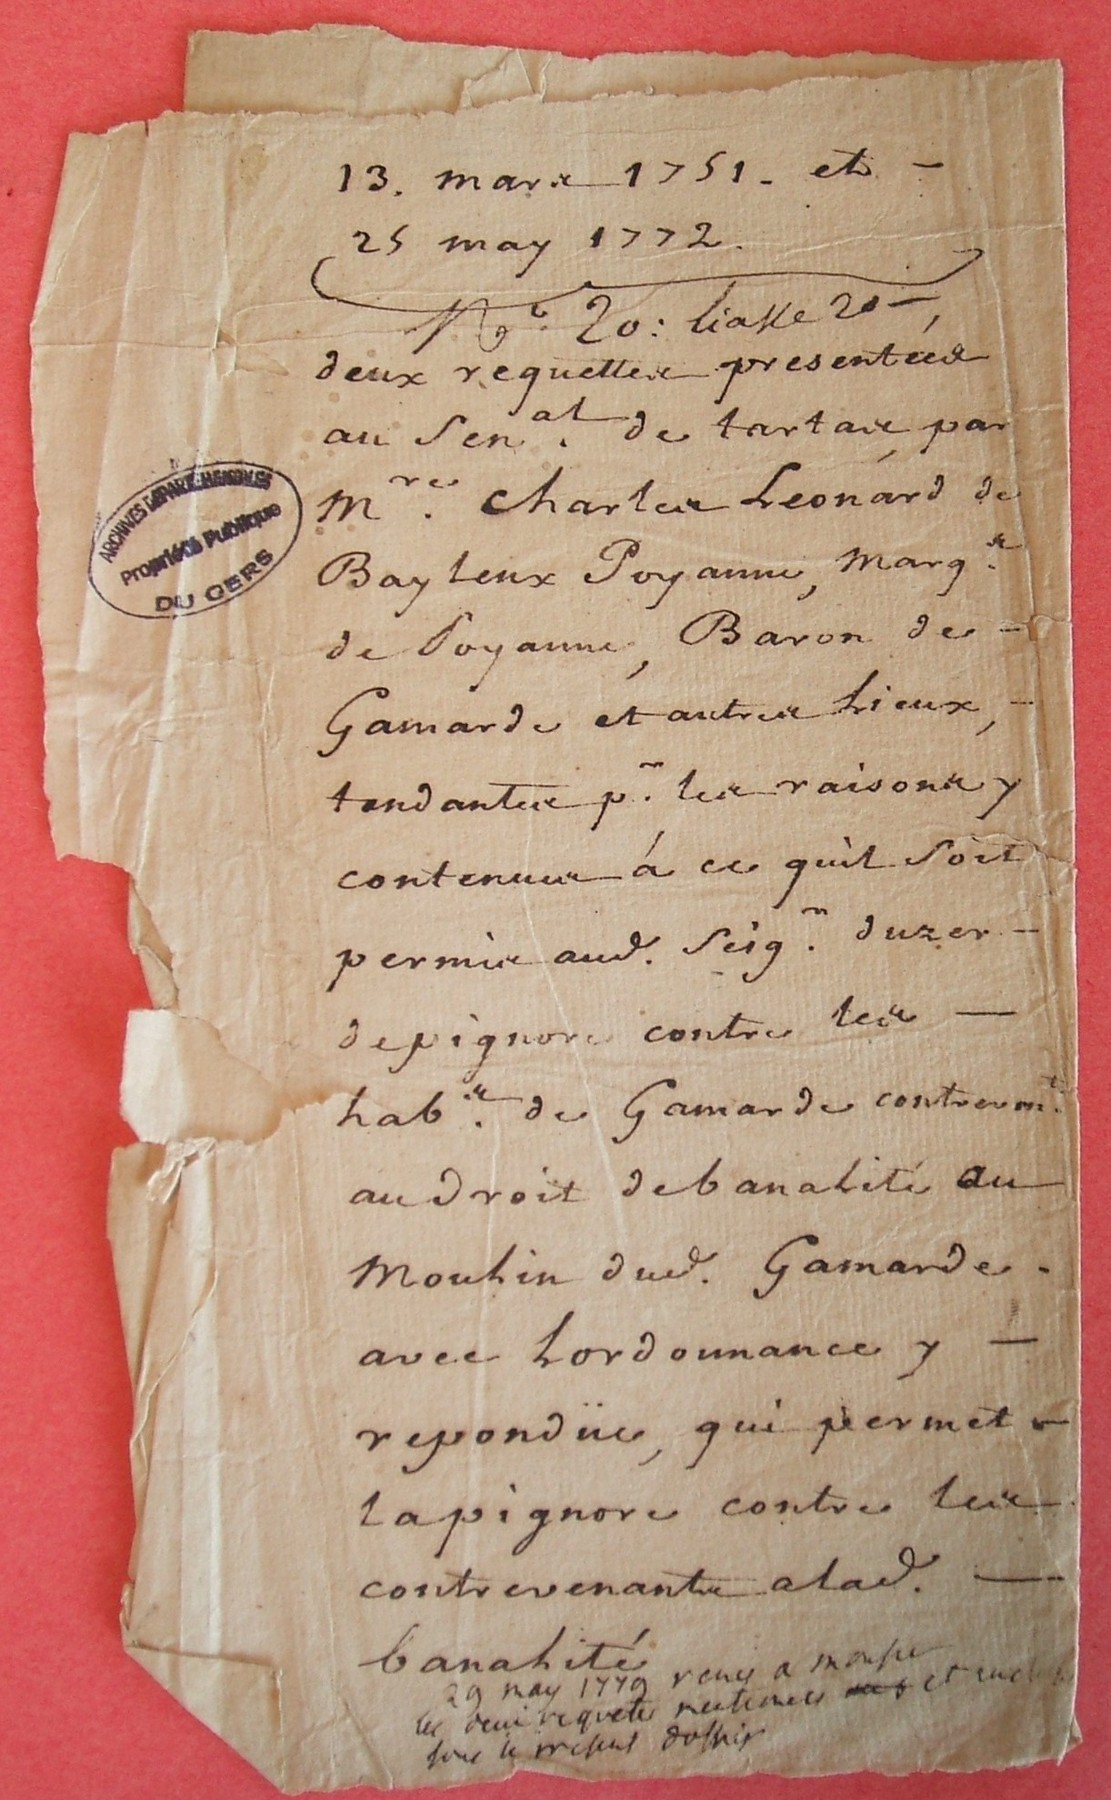 13. mars 1751. et -
25 may 1772.
No. 20: liasse 20 -
deux requettes presentées
au Sen.al de tartas par
M.re Charles Leonard de
Baylenx Poyanne, Marq.s
de Poyanne, Baron de -
Gamarde et autres Lieux, -
tendantes p.r les raisons y
contenues á ce quil soit
permis aud. Seig.r duzer -
depignore contre les —
hab.s de Gamarde contreven.t
au droit debanalité du
Moulin dud. Gamarde .
avec Lordonnance y —
repondüe, qui permet -
lapignore contre les
contrevenants alad. —
banalité
29 may 1779 remis a
les deux requetes mentionees et
sous le present dossier
ARCHIVES DEPARTEMENTALES
Propriété Publique
DU GERS